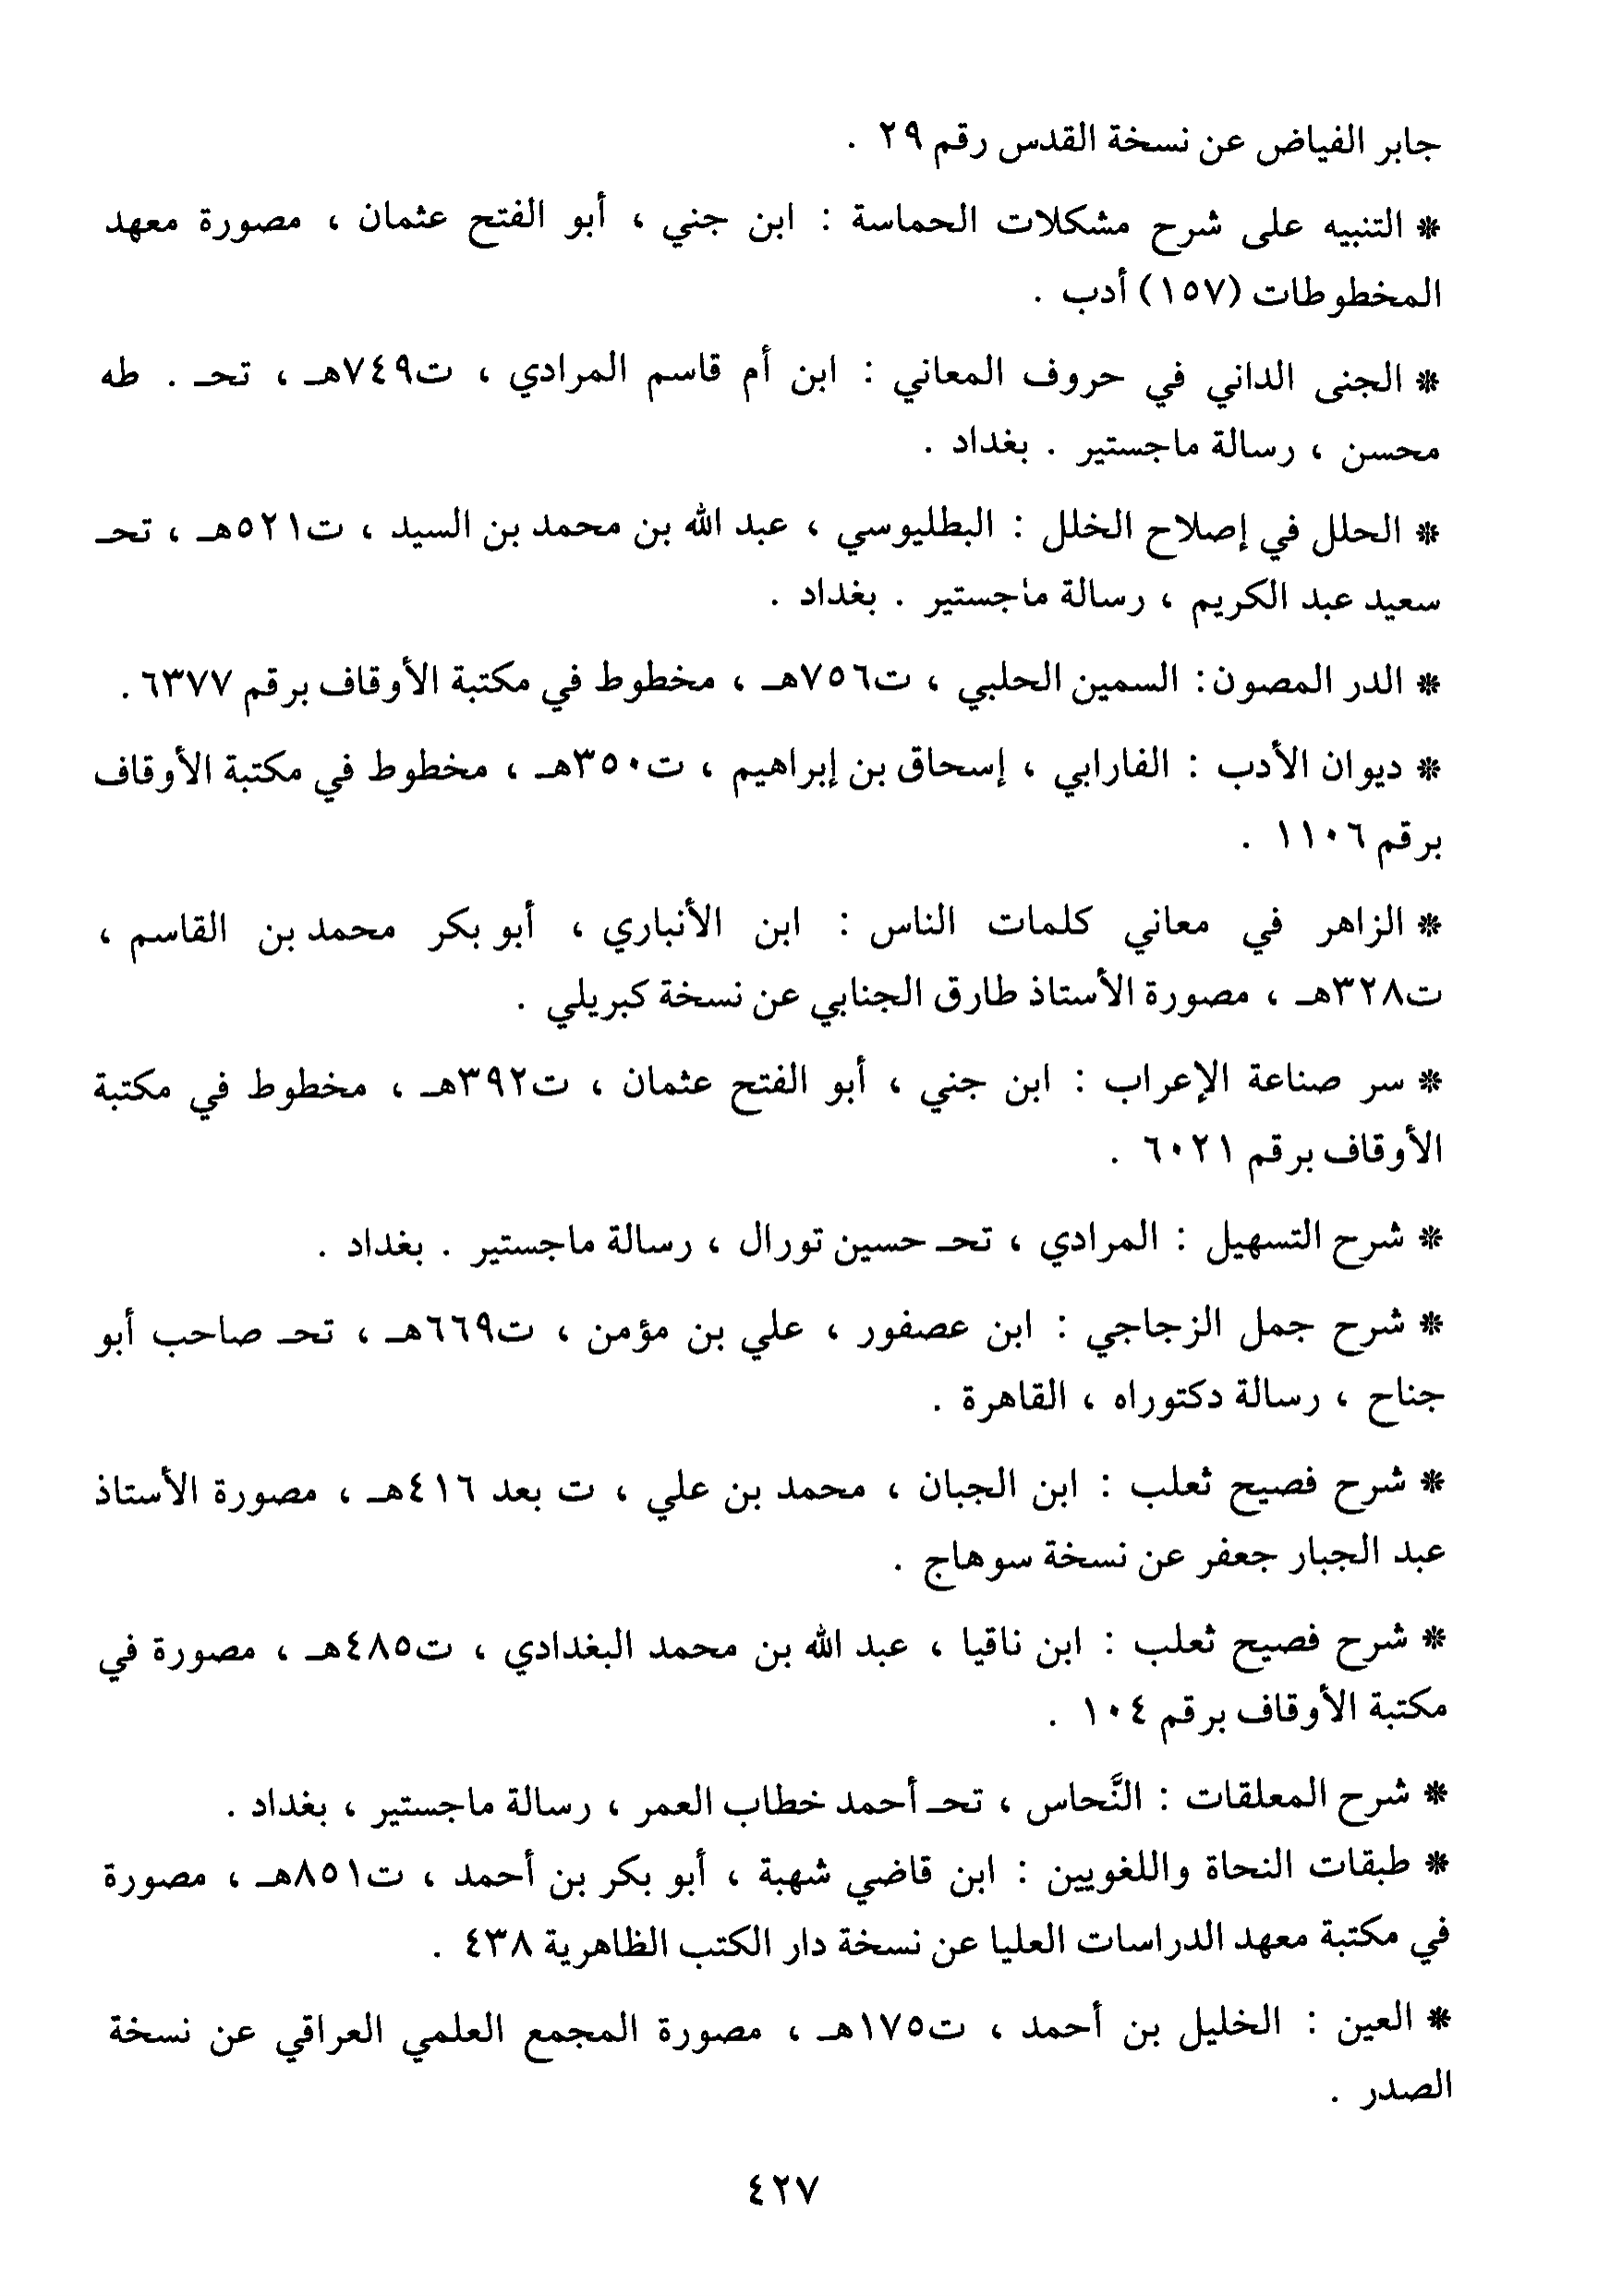 جابر الفياض عن نسخة القدس رقم ٢٩ .
* التنبيه على شرح مشكلات الحماسة : ابن جني ، أبو الفتح عثمان ، مصورة معهد
المخطوطات (١٥٧) أدب .
* الجنى الداني في حروف المعاني : ابن أم قاسم المرادي ، ت٧٤٩هـ ، تحـ . طه
محسن ، رسالة ماجستير . بغداد .
* الحلل في إصلاح الخلل : البطليوسي ، عبد الله بن محمد بن السيد ، ت٥٢١هـ ، تحـ
سعيد عبد الكريم ، رسالة ماجستير . بغداد .
* الدر المصون: السمين الحلبي ، ت٧٥٦هـ ، مخطوط في مكتبة الأوقاف برقم ٦٣٧٧ .
* ديوان الأدب : الفارابي ، إسحاق بن إبراهيم ، ت٣٥٠هـ ، مخطوط في مكتبة الأوقاف
برقم ١١٠٦ .
* الزاهر في معاني كلمات الناس : ابن الأنباري ، أبو بكر محمد بن القاسم ،
ت٣٢٨هـ ، مصورة الأستاذ طارق الجنابي عن نسخة كبريلي .
* سر صناعة الإعراب : ابن جني ، أبو الفتح عثمان ، ت٣٩٢هـ ، مخطوط في مكتبة
الأوقاف برقم ٦٠٢١ .
* شرح التسهيل : المرادي ، تحـ حسين تورال ، رسالة ماجستير . بغداد .
* شرح جمل الزجاجي : ابن عصفور ، علي بن مؤمن ، ت٦٦٩هـ ، تحـ صاحب أبو
جناح ، رسالة دكتوراه ، القاهرة .
* شرح فصيح ثعلب : ابن الجبان ، محمد بن علي ، ت بعد ٤١٦هـ ، مصورة الأستاذ
عبد الجبار جعفر عن نسخة سوهاج .
* شرح فصيح ثعلب : ابن ناقيا ، عبد الله بن محمد البغدادي ، ت٤٨٥هـ ، مصورة في
مكتبة الأوقاف برقم ١٠٤ .
* شرح المعلقات : النَّحاس ، تحـ أحمد خطاب العمر ، رسالة ماجستير ، بغداد .
* طبقات النحاة واللغويين : ابن قاضي شهبة ، أبو بكر بن أحمد ، ت٨٥١هـ ، مصورة
في مكتبة معهد الدراسات العليا عن نسخة دار الكتب الظاهرية ٤٣٨ .
* العين : الخليل بن أحمد ، ت١٧٥هـ ، مصورة المجمع العلمي العراقي عن نسخة
الصدر .
٤٢٧